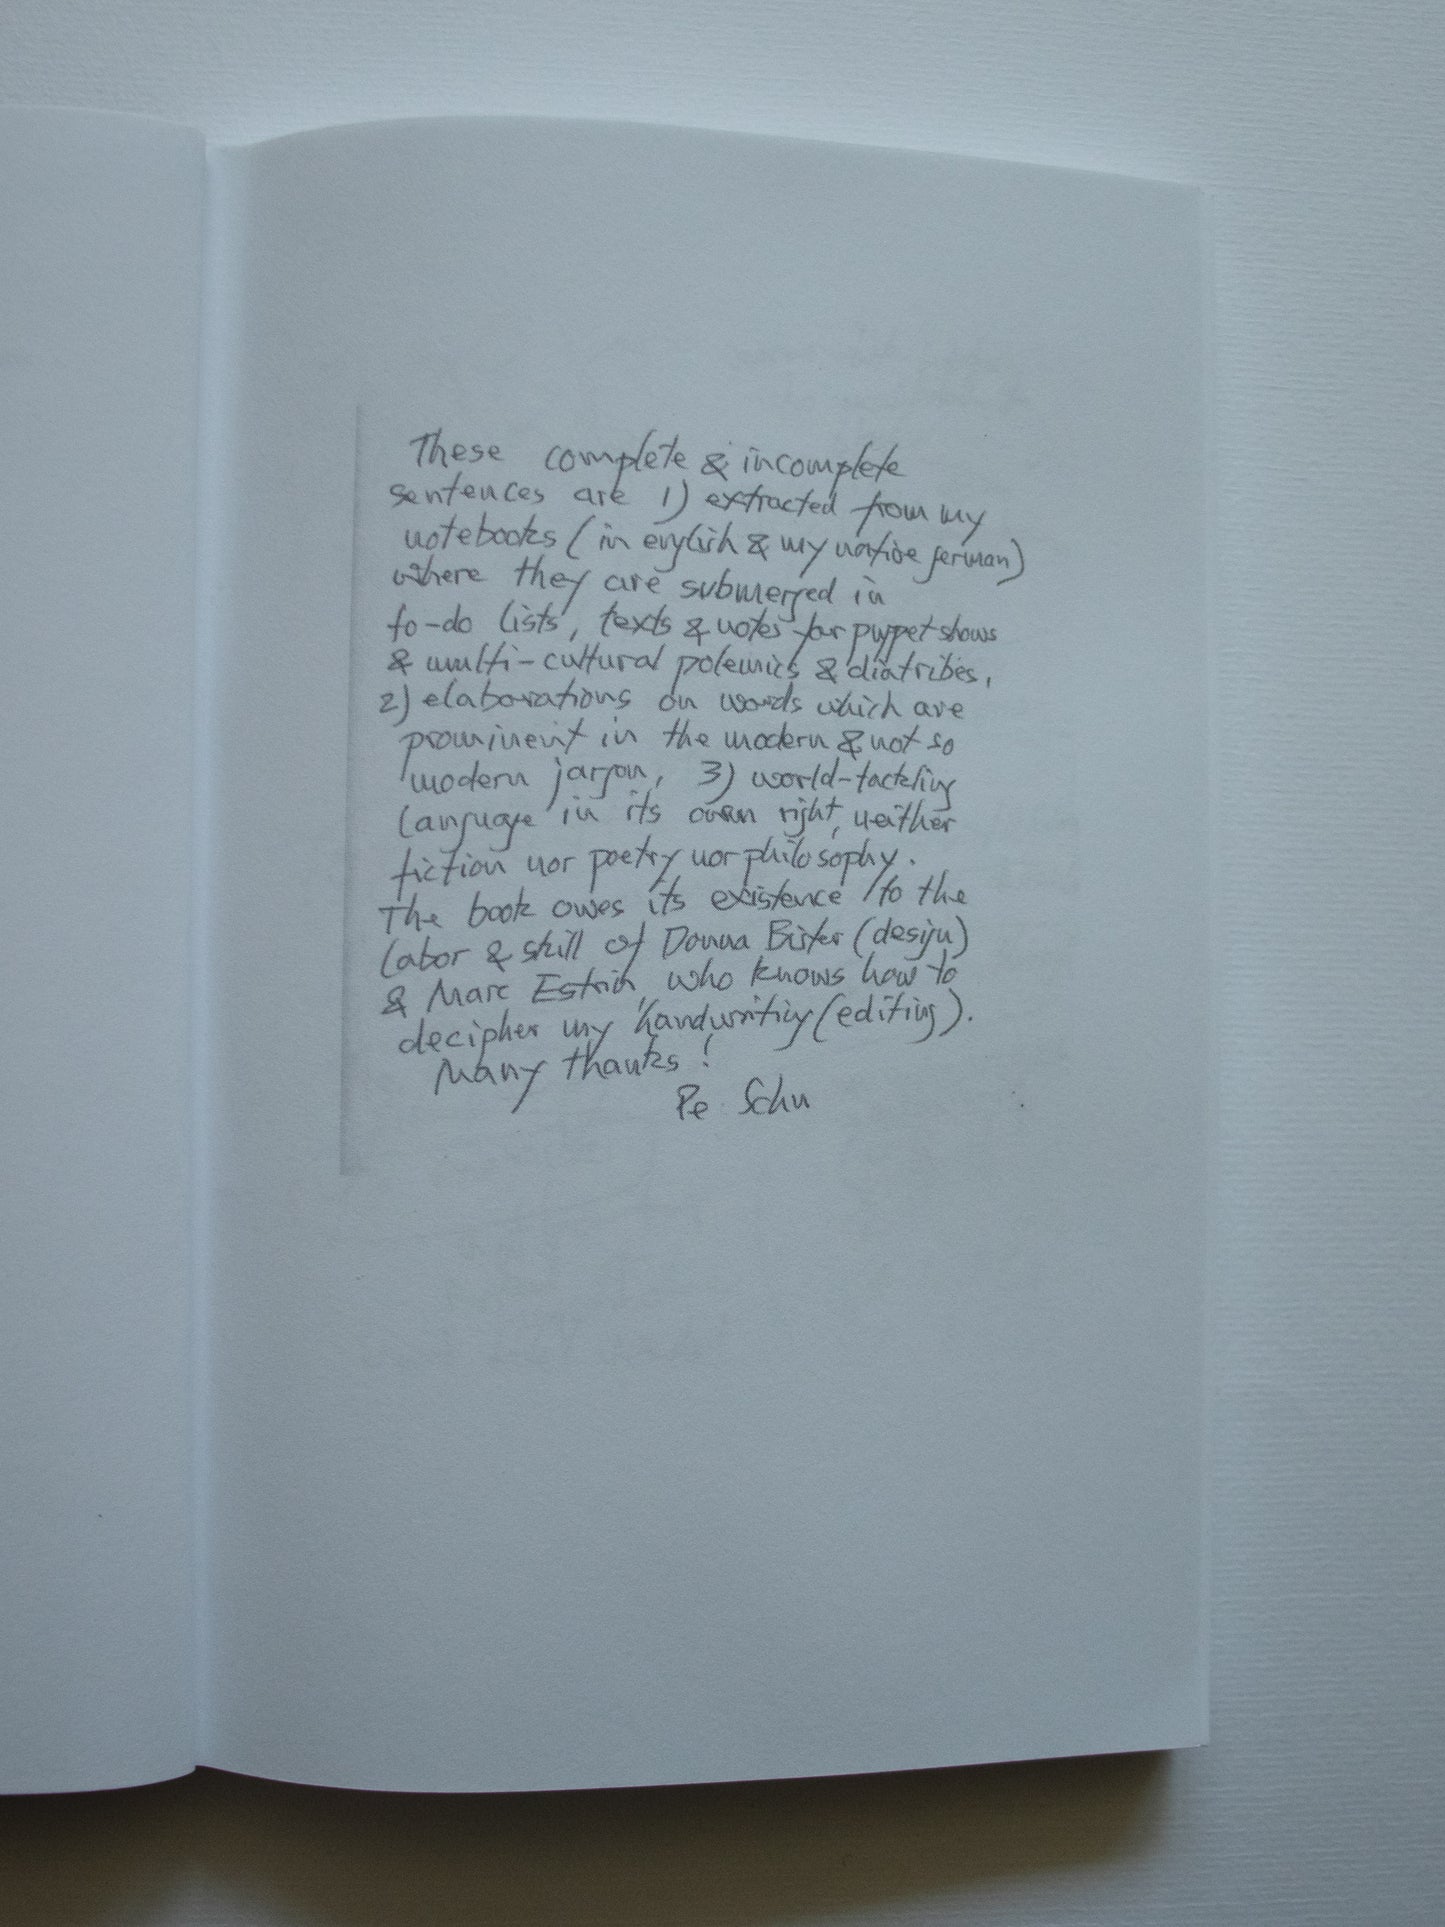 These complete & incomplete
sentences are 1) extracted from my
notebooks (in english & my native german)
where they are submerged in
to-do lists, texts & notes for puppet shows
& multi-cultural polemics & diatribes,
2) elaborations on words which are
prominent in the modern & not so
modern jargon, 3) world-tackling
language in its own right, neither
fiction nor poetry nor philosophy.
The book owes its existence to the
labor & skill of Donna Bister (design)
& Marc Estrin, who knows how to
decipher my handwriting (editing).
Many thanks!
Pe Schu